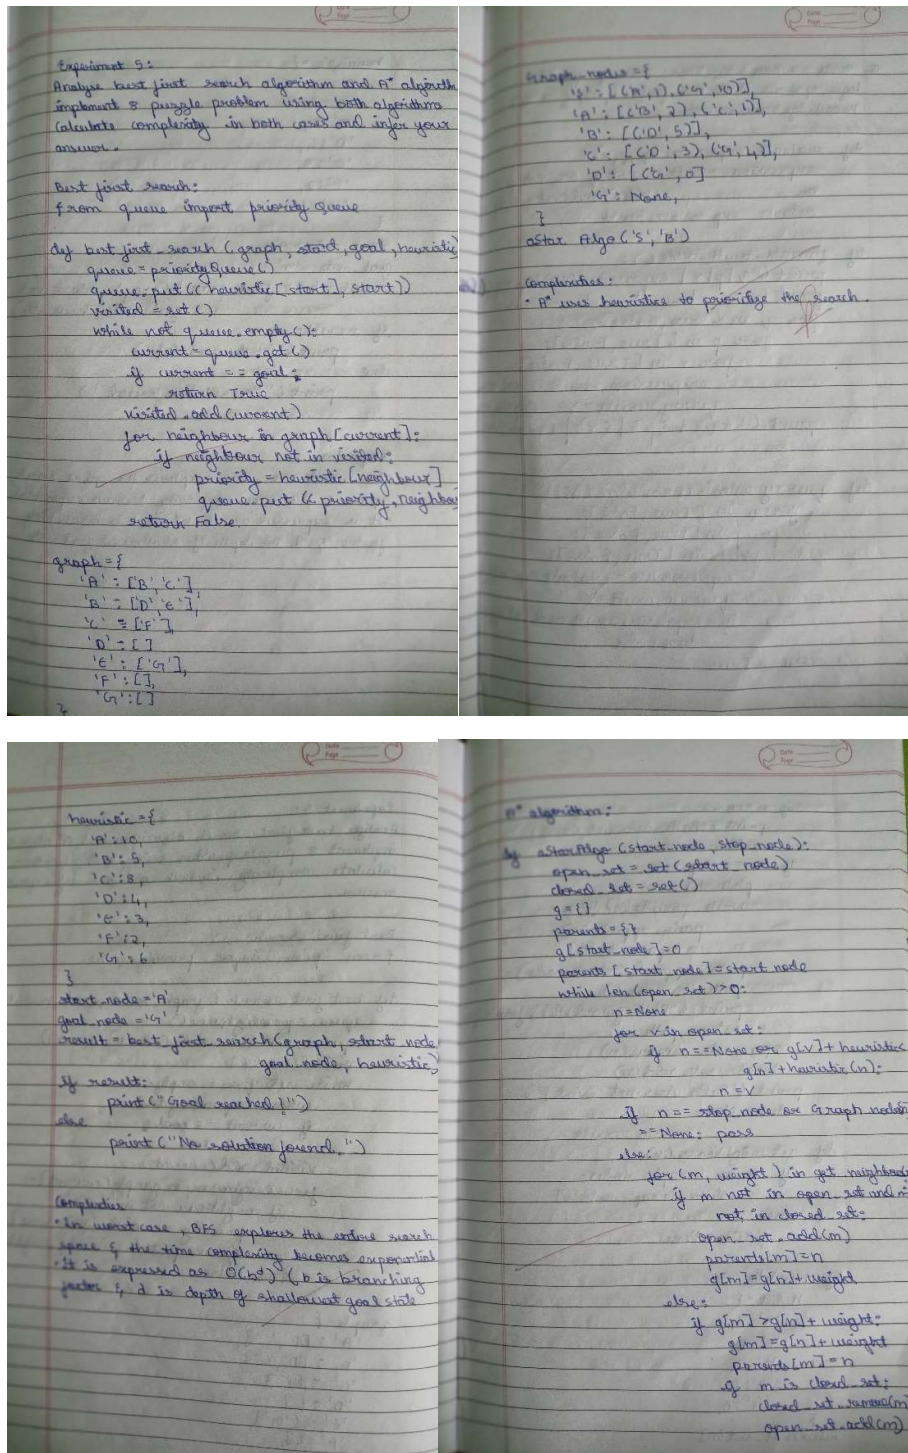 Experiment 5:
Analyse best first search algorithm and A* algorith
implement 8 puzzle problem using both algorithms
Calculate complexity in both cases and infer your
answer.
Best first search:
from queue import priority Queue
def best_first_search (graph, start, goal, heuristic)
queue = priorityQueue()
queue.put((heuristic[start], start))
visited = set()
while not queue.empty():
current = queue.get()
if current == goal:
return True
visited.add(current)
for neighbour in graph[current]:
if neighbour not in visited:
priority = heuristic[neighbour]
queue.put((priority, neighbou
return False
graph = {
'A' : ['B', 'C'],
'B' : ['D', 'E'],
'C' : ['F'],
'D' : [ ]
'E' : ['G'],
'F' : [],
'G' : [ ]
}
Graph_nodes = {
'S' : [('A', 1), ('G', 10)],
'A' : [('B', 2), ('C', 1)],
'B' : [('D', 5)],
'C' : [('D', 3), ('G', 4)],
'D' : [('G', 0]
'G' : None,
}
aStar Algo('S', 'B')
Complexities:
• A* uses heuristics to prioritize the search.
Date
Page
heuristic = {
'A' : 10,
'B' : 5,
'C' : 8,
'D' : 4,
'E' : 3,
'F' : 2,
'G' : 6
}
start_node = 'A'
goal_node = 'G'
result = best_first_search(graph, start_node
goal_node, heuristic)
if result:
print("Goal reached!")
else
print("No solution found.")
Complexities
• In worst case, BFS explores the entire search
space & the time complexity becomes exponential
• It is expressed as O(b^d) (b is branching
factor & d is depth of shallowest goal state
Date
Page
A* algorithm:
def aStarAlgo (start_node, stop_node):
open_set = set(start_node)
closed_set = set()
g = {}
parents = {}
g[start_node] = 0
parents[start_node] = start_node
while len(open_set) > 0:
n = None
for v in open_set:
if n == None or g[v] + heuristic
g[n] + heuristic(n):
n = v
if n == stop_node or Graph_nodes
== None: pass
else:
for (m, weight) in get neighbou
if m not in open_set and
not in closed_set:
open_set.add(m)
parents[m] = n
g[m] = g[n] + weight
else:
if g[m] > g[n] + weight:
g[m] = g[n] + weight
parents[m] = n
if m is closed_set:
closed_set.remove(m
open_set.add(m)